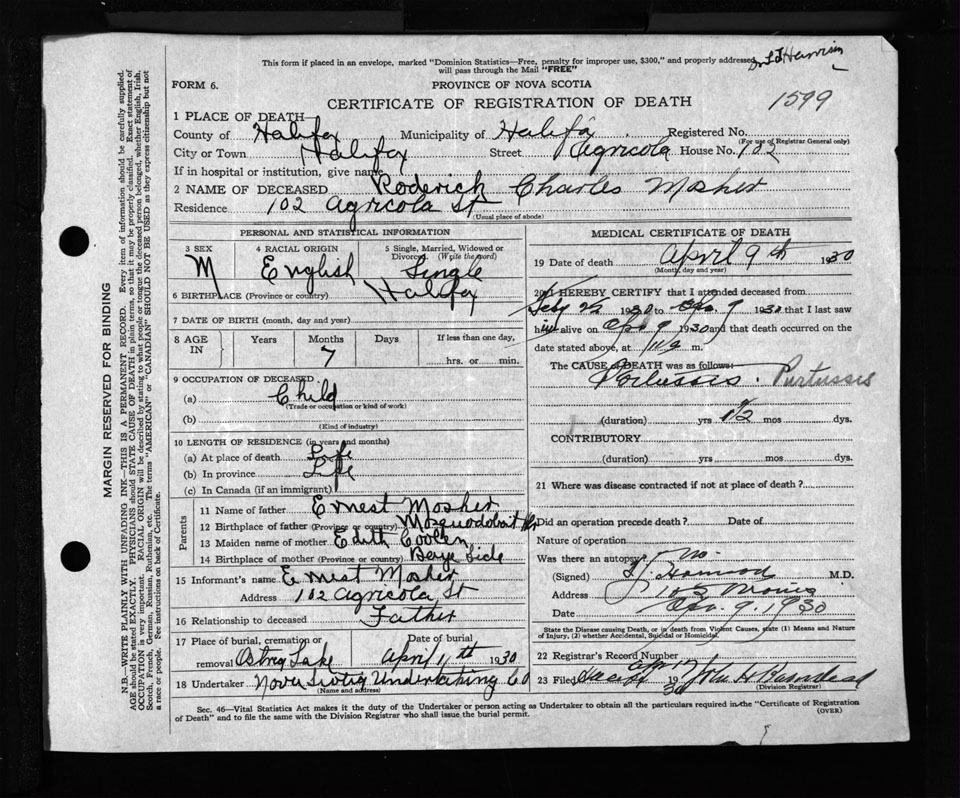 This form if placed in an envelope, marked "Dominion Statistics—Free, penalty for improper use, $300," and properly addressed
will pass through the Mail "FREE"
FORM 6.
PROVINCE OF NOVA SCOTIA
CERTIFICATE OF REGISTRATION OF DEATH
1599
1 PLACE OF DEATH
County of Halifax Municipality of Halifax Registered No.
(For use of Registrar General only)
City or Town Halifax Street Agricola House No. 102
If in hospital or institution, give name
2 NAME OF DECEASED Roderick Charles Mosher
Residence 102 Agricola St
(Usual place of abode)
PERSONAL AND STATISTICAL INFORMATION
3 SEX M
4 RACIAL ORIGIN English
5 Single, Married, Widowed or
Divorced (Write the word)
Single
6 BIRTHPLACE (Province or country) Halifax
7 DATE OF BIRTH (month, day and year)
8 AGE IN Years Months Days If less than one day,
7 hrs. or min.
9 OCCUPATION OF DECEASED
(a) Child
(Trade or occupation or kind of work)
(b)
(Kind of industry)
10 LENGTH OF RESIDENCE (in years and months)
(a) At place of death Life
(b) In province Life
(c) In Canada (if an immigrant)
Parents
11 Name of father Ernest Mosher
12 Birthplace of father (Province or country) Mosquodobait Hr
13 Maiden name of mother Edith Coolen
14 Birthplace of mother (Province or country) Side
15 Informant's name Ernest Mosher
Address 102 Agricola St
16 Relationship to deceased Father
17 Place of burial, cremation or Date of burial
removal Lake April 11th 1930
18 Undertaker Nova Scotia Undertaking Co
(Name and address)
MEDICAL CERTIFICATE OF DEATH
19 Date of death April 9th 1930
(Month, day and year)
20 I HEREBY CERTIFY that I attended deceased from
1930 to Apr. 9 1930 that I last saw
h alive on Apr 9 1930 and that death occurred on the
date stated above, at m.
The CAUSE OF DEATH was as follows:
Pertussis. Purtussis
(duration) yrs 1 1/2 mos dys.
CONTRIBUTORY
(duration) yrs mos dys.
21 Where was disease contracted if not at place of death?
Did an operation precede death? Date of
Nature of operation
Was there an autopsy? no
(Signed) M.D.
Address 105 Morris
Date Apr. 9, 1930
State the Disease causing Death, or in death from Violent Causes, state (1) Means and Nature
of Injury, (2) whether Accidental, Suicidal or Homicidal.
22 Registrar's Record Number
23 Filed 19 John H
(Division Registrar)
Sec. 46—Vital Statistics Act makes it the duty of the Undertaker or person acting as Undertaker to obtain all the particulars required in the "Certificate of Registration
of Death" and to file the same with the Division Registrar who shall issue the burial permit.
(OVER)
MARGIN RESERVED FOR BINDING
N.B.—WRITE PLAINLY WITH UNFADING INK—THIS IS A PERMANENT RECORD. Every item of information should be carefully supplied.
AGE should be stated EXACTLY. PHYSICIANS should STATE CAUSE OF DEATH in plain terms, so that it may be properly classified. Exact statement of
OCCUPATION is very important. RACIAL ORIGIN will be described by stating to what people or tongue the deceased person belonged, whether English, Irish,
Scotch, French, German, Russian, Ruthenian, etc. The terms "AMERICAN" or "CANADIAN" SHOULD NOT BE USED as they express citizenship but not
a race or people. See instructions on back of Certificate.